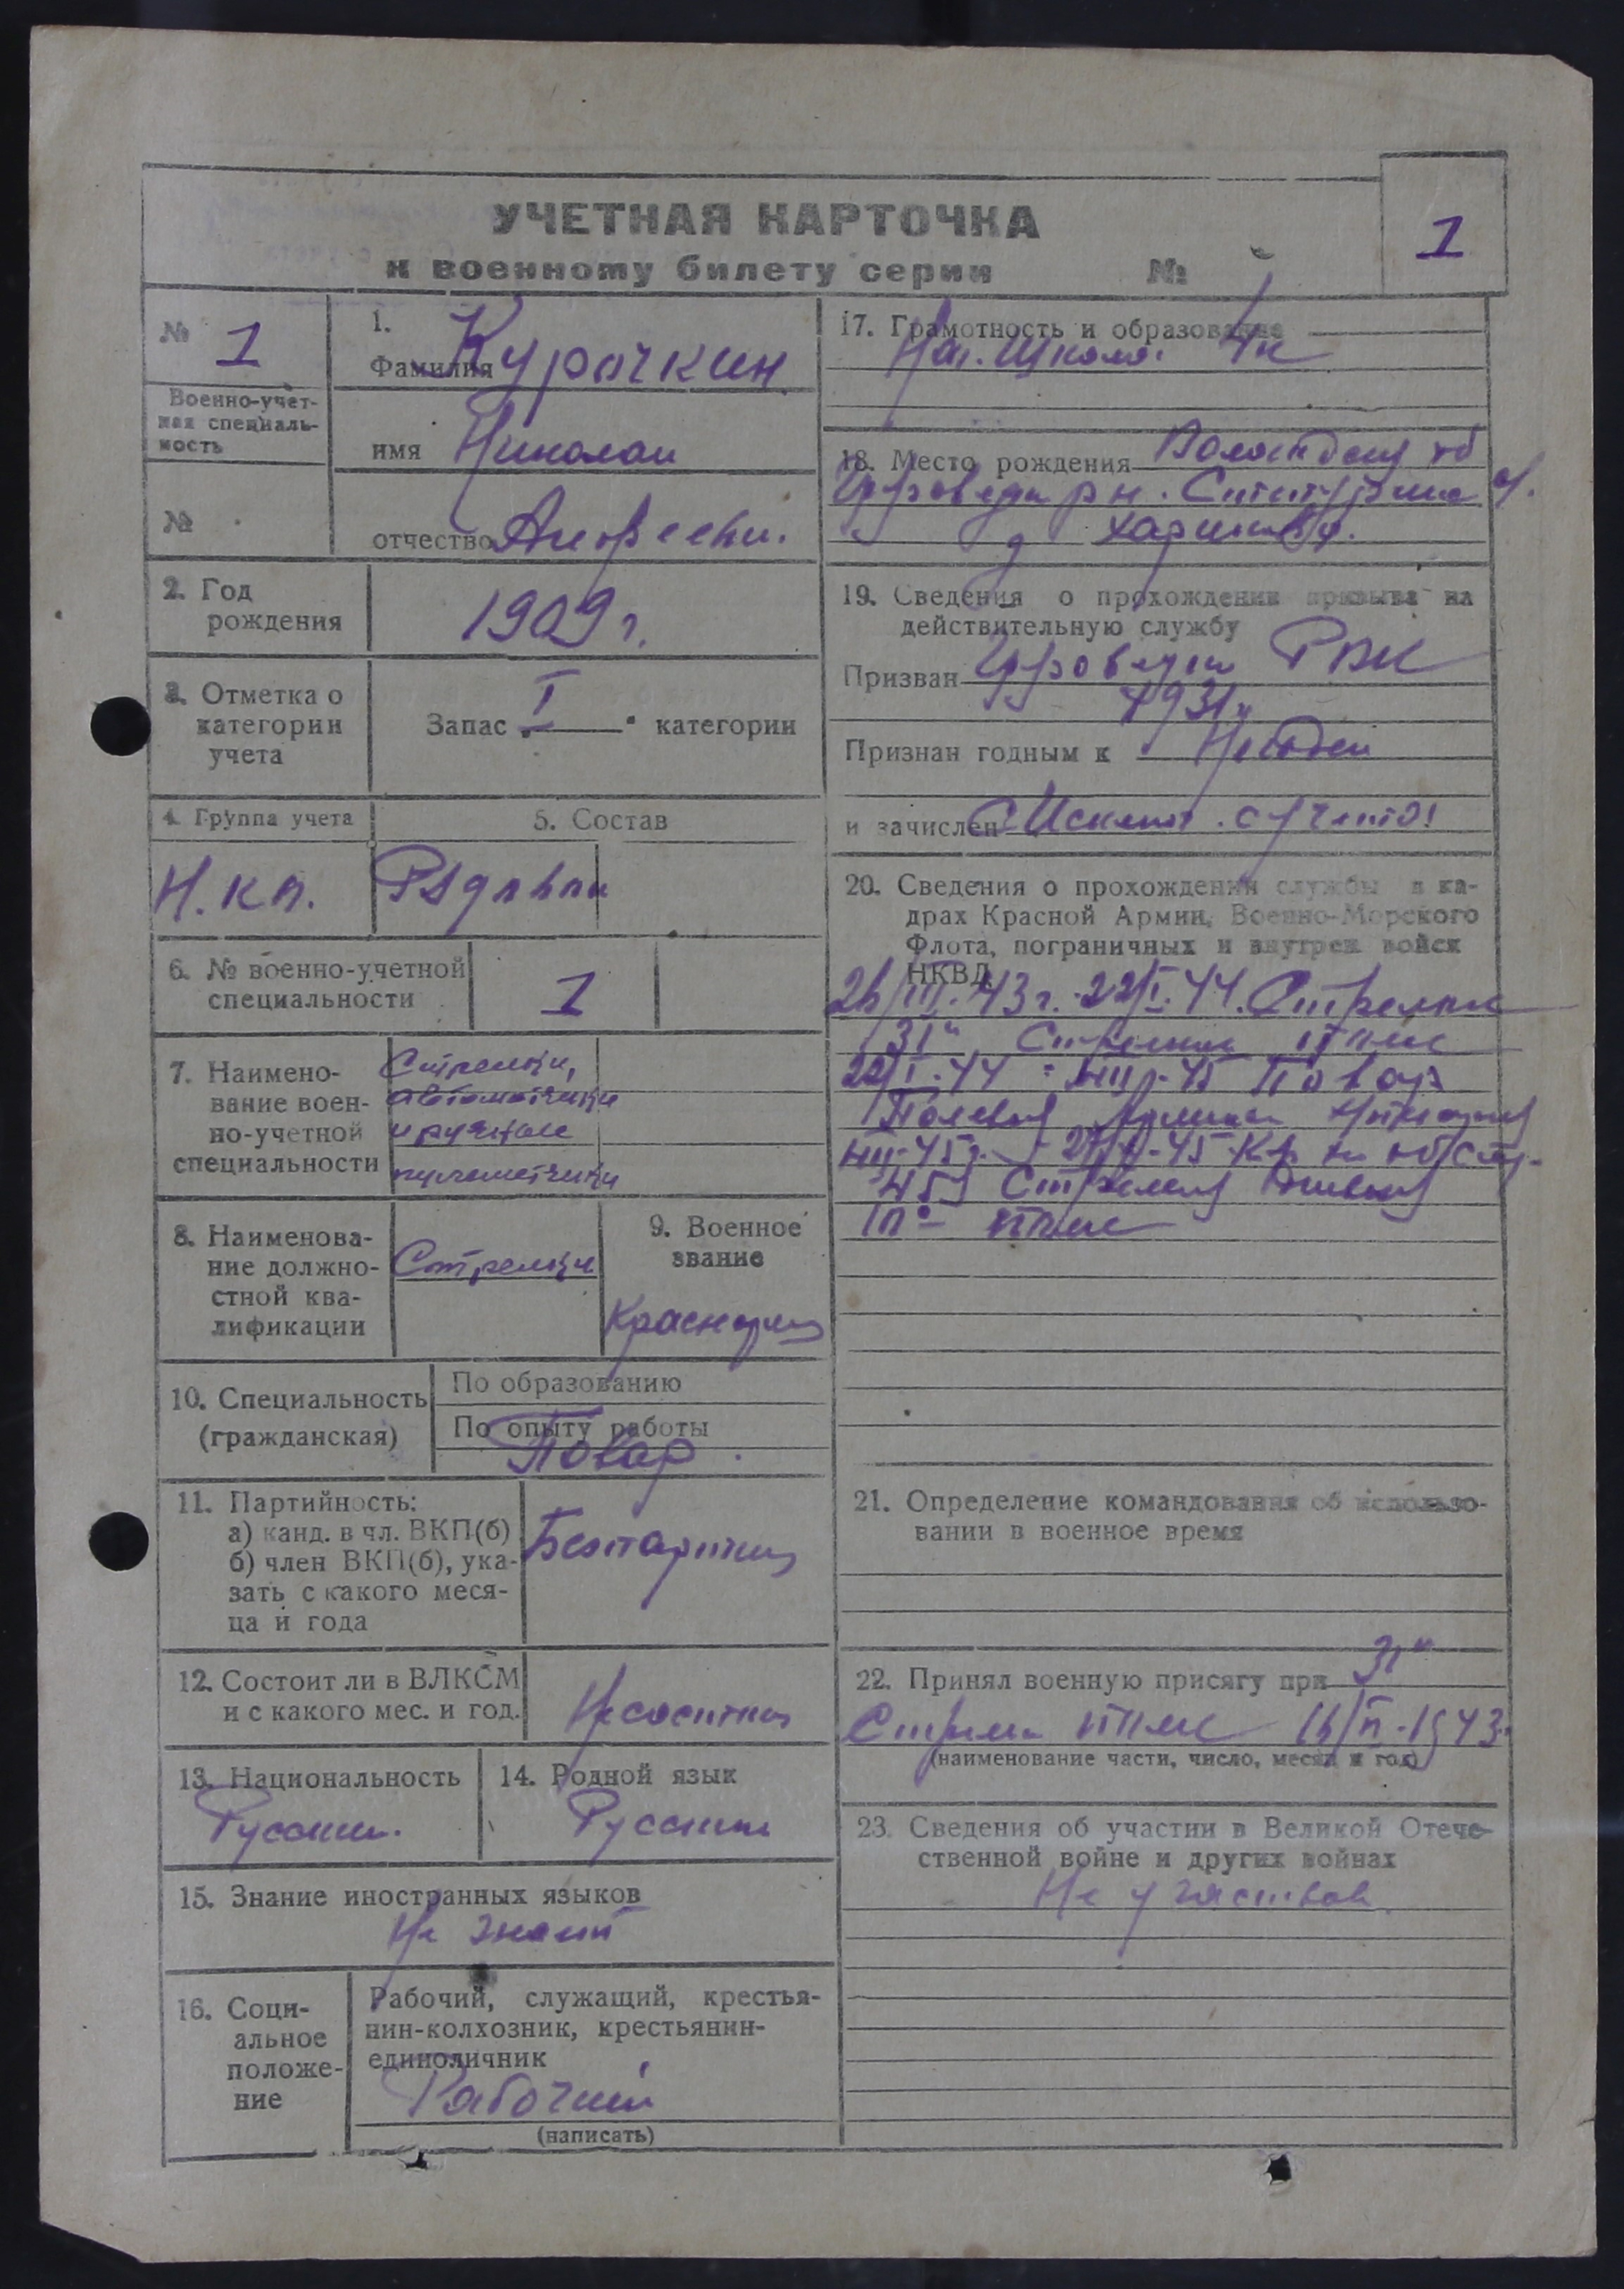 УЧЕТНАЯ КАРТОЧКА
к военному билету серии №
1
№ 1
Военно-учет-
ная специаль-
ность
№
1.
Фамилия Курочкин
имя Николай
отчество Андрееви.
2. Год
рождения
1909 г.
3. Отметка о
категории
учета
Запас I категории
4. Группа учета
Н.К.А.
5. Состав
Рядовой
6. № военно-учетной
специальности
1
7. Наимено-
вание воен-
но-учетной
специальности
Стрелки,
автоматчики
и ручные
пулеметчики
8. Наименова-
ние должно-
стной ква-
лификации
Стрелки
9. Военное
звание
Красноармец
10. Специальность
(гражданская)
По образованию
По опыту работы
Повар.
11. Партийность:
а) канд. в чл. ВКП(б)
б) член ВКП(б), ука-
зать с какого меся-
ца и года
Безпартийн
12. Состоит ли в ВЛКСМ
и с какого мес. и год.
Несостоял
13. Национальность
Русский.
14. Родной язык
Русский
15. Знание иностранных языков
Не знает
16. Соци-
альное
положе-
ние
Рабочий, служащий, крестья-
нин-колхозник, крестьянин-
единоличник
Рабочий
(написать)
17. Грамотность и образование
Нач. школа. 4 к
18. Место рождения Вологодская об
р н.
д
19. Сведения о прохождении призыва на
действительную службу
Призван РВК
1931 г
Признан годным к Негоден
и зачислен С Исключ. с учета!
20. Сведения о прохождении службы в ка-
драх Красной Армии, Военно-Морского
Флота, пограничных и внутрен войск
НКВД
26/III-43 г. - 22/I-44. Стрелок
31й Стрелков полк
22/I-44 - III-45 Повар
Полевой
III-45 г.
Стрелков Дивизия
полк
21. Определение командования об использо-
вании в военное время
22. Принял военную присягу при 31й
Стрелк полк 16/IV-1943.
(наименование части, число, месяц и год)
23. Сведения об участии в Великой Отече-
ственной войне и других войнах
Не участвовал.